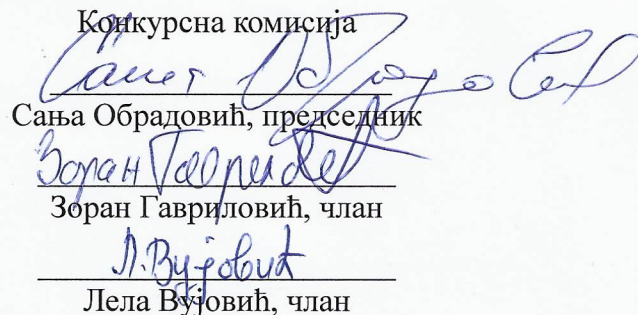 Конкурсна комисија
Сања Обрадовић
Сања Обрадовић, председник
Зоран Гавриловић
Зоран Гавриловић, члан
Л. Вујовић
Лела Вујовић, члан